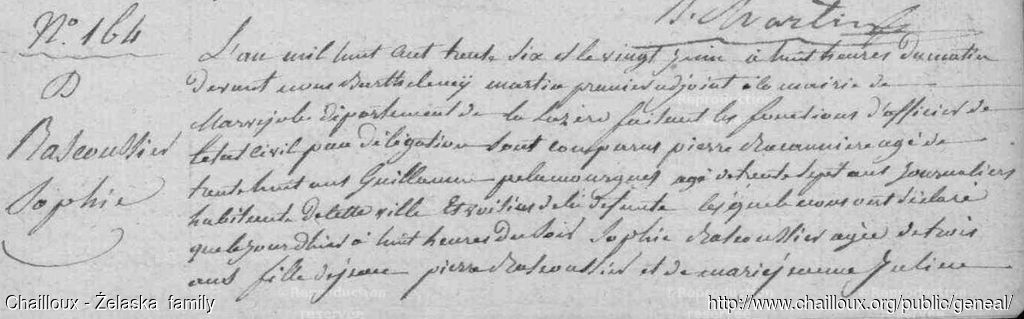 N.° 164
D
Rascoussier
Sophie
B. Martin
L'an mil huit cent trente six et le vingt juin à huit heures du matin
devant nous Barthelemy martin premier adjoint à la mairie de
Marvejols département de la Lozère faisant les fonctions d'officier de
l'etat civil par délégation sont comparus pierre agé de
trente huit ans Guillaume pelamourgues agé de trente sept ans journaliers
habitants de cette ville Et voisins de la defunte lesquels nous ont déclaré
que le jour d'hier à huit heures du soir Sophie Rascoussier agée de trois
ans fille de jean pierre Rascoussier et de marie jeanne Julien
Chailloux - Żelaska family
http://www.chailloux.org/public/geneal/